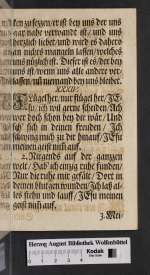 ten zusetzen/er ist bey uns der uns
gar nahe verwandt ist/ und uns
hertzlich liebet/und wird es daher
an nichts mangeln lassen/welches
uns nützlich ist. Dieser ist es/der bey
uns ist/wenn uns alle andere ver-
lassen/ niemand bey uns bleibet.
XXXIV.
Flügel her, nur flügel her/ JE-
su, ich wol gerne scheiden/Ich
wer doch schon bey dir wär/ Und
säh' sich in deinen freuden / Ich
schwang mich zu dir hinauf/JEsu
meinen geist nim auf.
2. Nirgends auf der gantzen
welt/ Hab' ich einige ruhe funden/
Nur die ruhe mir gefält/ Dort in
deinen blutgen wunden/Ich laß al-
les stehn und lauff/ JEsu meinen
geist nim auf.
3. Mei-
Herzog August Bibliothek Wolfenbüttel
Kodak